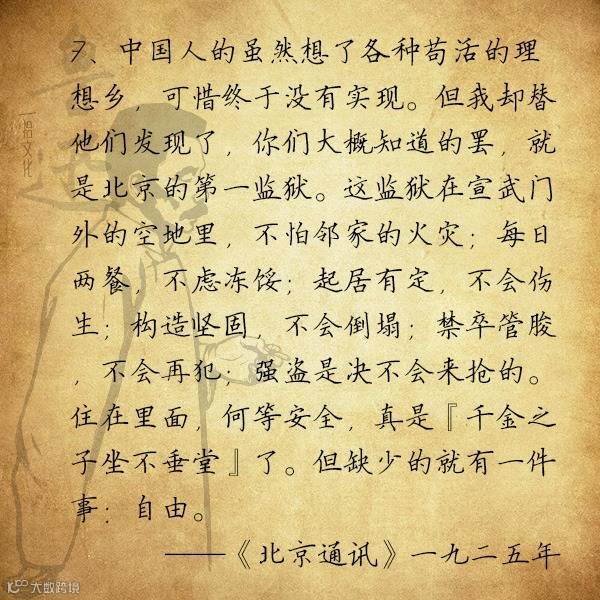 7、中国人的虽然想了各种苟活的理
想乡，可惜终于没有实现。但我却替
他们发现了，你们大概知道的罢，就
是北京的第一监狱。这监狱在宣武门
外的空地里，不怕邻家的火灾；每日
两餐，不虑冻馁；起居有定，不会伤
生；构造坚固，不会倒塌；禁卒管胺
，不会再犯；强盗是决不会来抢的。
住在里面，何等安全，真是『千金之
子坐不垂堂』了。但缺少的就有一件
事：自由。
——《北京通讯》一九二五年
拾文化
大数跨境